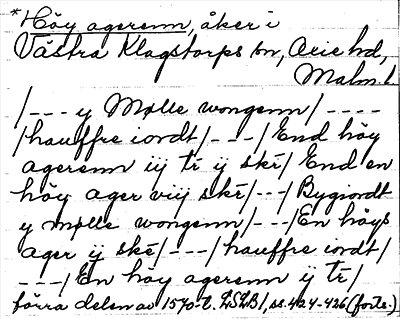 *Höy agerenn, åker i
Västra Klagstorps sn, Oxie hd,
Malm. l.
/--- y Mølle wongenn/----
/hauffre iordt/---/End höy
agerenn iij tr̄ ij skē/ End en
höy ager viij skē/---/Bygiordt
y mølle wongenn/---/En höys
ager ij skē/---/hauffre iordt/
---/En höy agerenn ij tr̄/
förra delen av 1570-t. LSLB/ss. 424-426 (forts.)